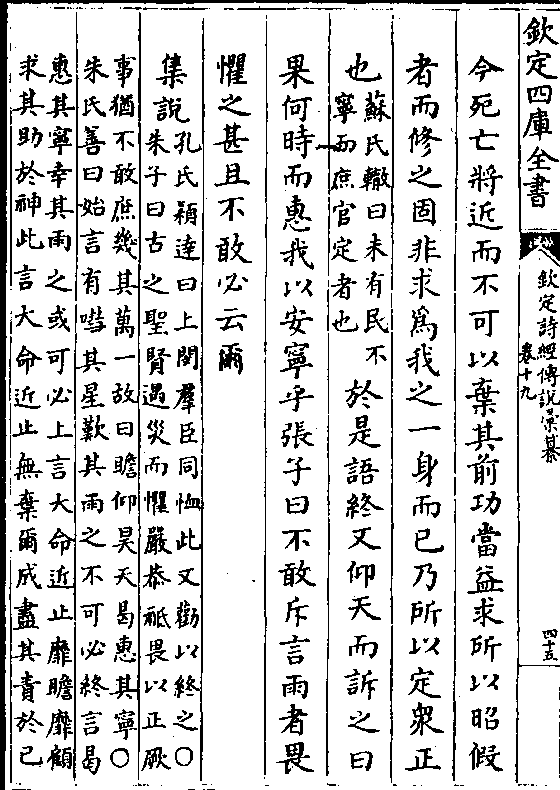 欽定四庫全書
欽定詩經傳說彙纂
卷十九
四十五
今死亡將近而不可以棄其前功當益求所以昭假
者而修之固非求為我之一身而已乃所以定衆正
也
蘇氏轍曰未有民不
寧而庶官定者也
於是語終又仰天而訴之曰
果何時而惠我以安寧乎張子曰不敢斥言雨者畏
懼之甚且不敢必云爾
集說
孔氏穎達曰上閔羣臣同恤此又勸以終之〇
朱子曰古之聖賢遇災而懼嚴恭祗畏以正厥
事猶不敢庶幾其萬一故曰瞻仰昊天曷惠其寧〇
朱氏善曰始言有嘒其星歎其雨之不可必終言曷
惠其寧幸其雨之或可必上言大命近止靡瞻靡顧
求其助於神此言大命近止無棄爾成盡其責於己